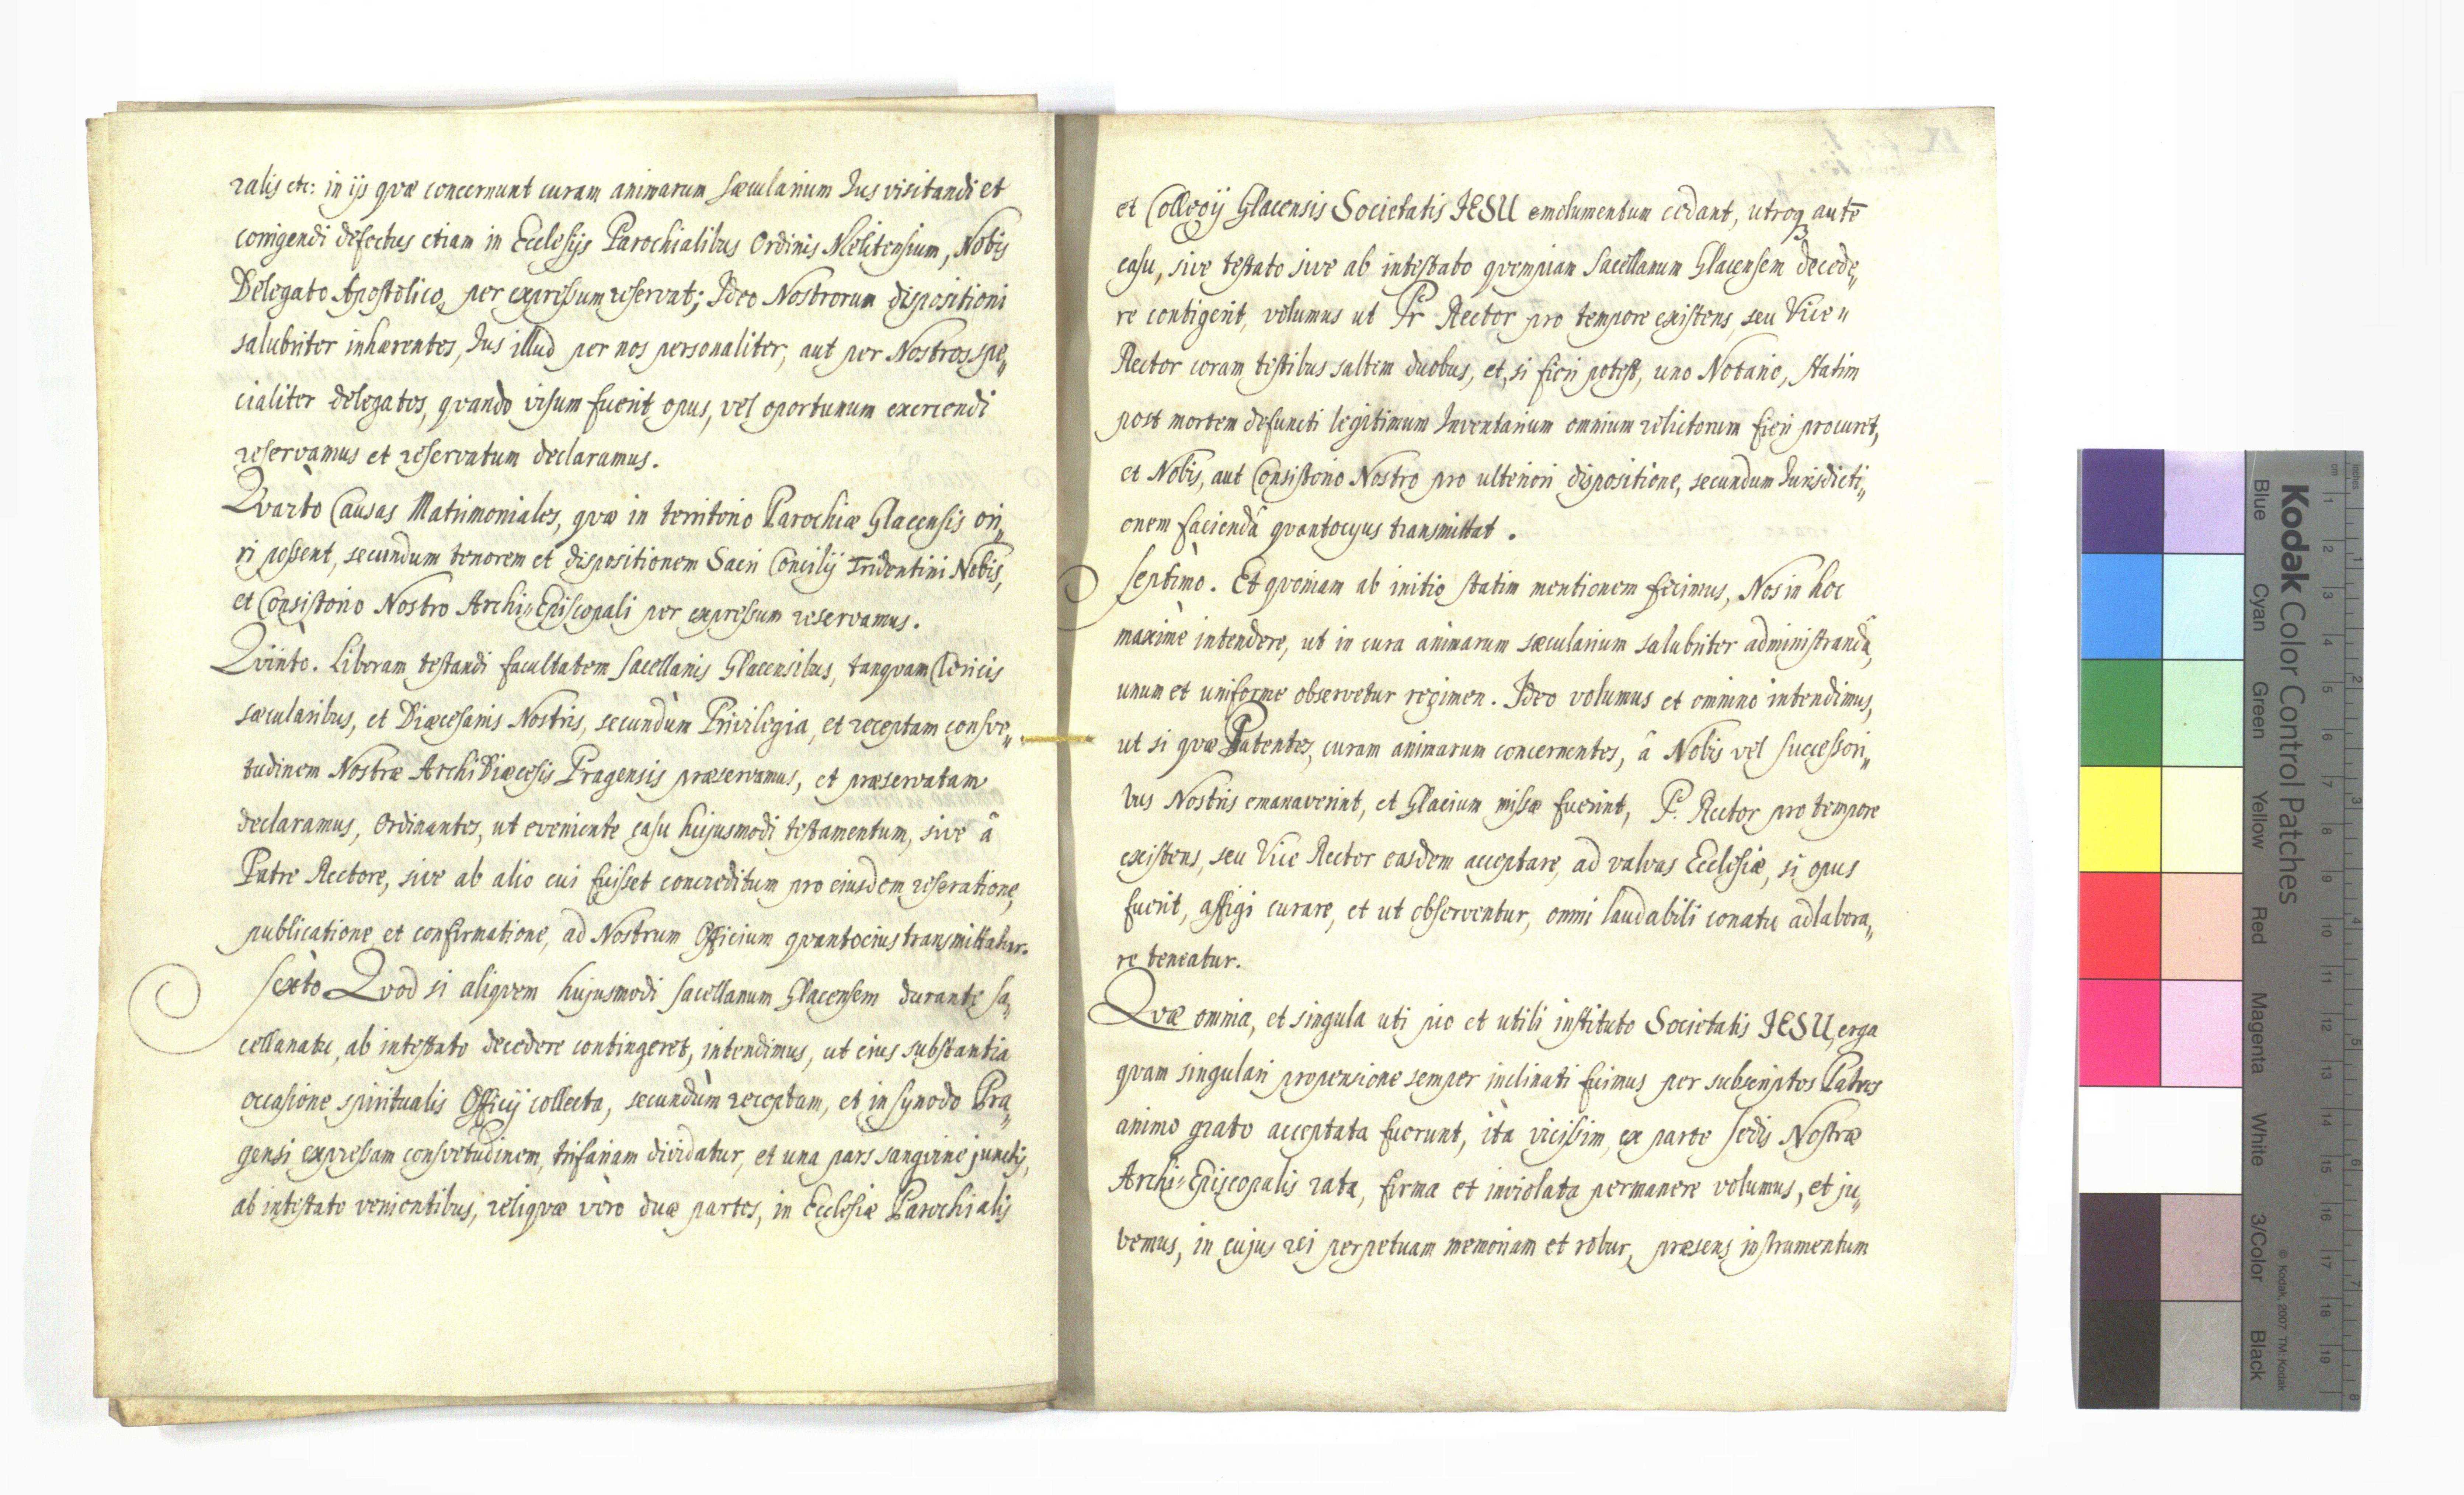 ralis etc: in ijs qvæ concernunt curam animarum sæcularium Jus visitandi et
corrigendi defectus etiam in Ecclesijs Parochialibus Ordinis Melitensium, Nobis
Delegato Apostolico, per expressum reservat; Ideo Nostrorum dispositioni
salubriter inhærentes, Jus illud per nos personaliter, aut per Nostros spe„
cialiter delegatos, qvando visum fuerit opus, vel oportunum exercendi
reservamus et reservatum declaramus.
Qvartò Causas Matrimoniales, qvæ in territorio Parochiæ Glacensis ori„
ri possent, secundum tenorem et dispositionem Sacri Concilij Tridentini Nobis,
et Consistorio Nostro Archi„Episcopali per expressum reservamus.
Qvintò. Liberam testandi facultatem Sacellanis Glacensibus, tanqvam Clericis
sæcularibus, et Diæcesanis Nostris, secundùm Privilegia, et receptam consve„
tudinem Nostræ ArchiDiæcesis Pragensis præservamus, et præservatam
declaramus, Ordinantes, ut eveniente casu hujusmodi testamentum, sive â
Patre Rectore, sive ab alio cui fuisset concreditum pro eiusdem reseratione,
publicatione et confirmatione, ad Nostrum Officium qvantocius transmittatur.
Sextò Qvod si aliqvem hujusmodi Sacellanum Glacensem durante Sa„
cellanatu, ab intestato decedere contingeret, intendimus, ut eius substantia
occasione spiritualis Officij collecta, secundùm receptam, et in Synodo Pra„
gensi expressam consvetudinem, trifariam dividatur, et una pars sangvine junctis,
ab intestato venientibus, reliqvæ vèro duæ partes, in Ecclesiæ Parochialis
et Collegij Glacensis Societatis JESU emolumentum cedant, utroq3 autē
casu, sive testato sive ab intestato qvempiam Sacellanum Glacensem decede„
re contigerit, volumus ut Pr Rector pro tempore existens, seu Vice„
Rector coram testibus saltem duobus, et, si fieri potest, uno Notario, statim
post mortem defuncti legitimum Inventarium omnium relictorum fieri procuret,
et Nobis, aut Consistorio Nostro pro ulteriori dispositione, secundum Jurisdicti„
onem faciendâ qvantocyus transmittat.
Septimò. Et qvoniam ab initio statim mentionem fecimus, Nos in hoc
maximè intendere, ut in cura animarum sæcularium salubriter administrandâ,
unum et uniforme observetur regimen. Ideo volumus et omnino intendimus,
ut si qvæ Patentes, curam animarum concernentes, â Nobis vel Successori„
bus Nostris emanaverint, et Glacium missæ fuerint, P. Rector pro tempore
existens, seu Vice Rector easdem acceptare, ad valvas Ecclesiæ, si opus
fuerit, affigi curare, et ut observentur, omni laudabili conatu adlabora„
re teneatur.
Qvæ omnia, et singula uti pio et utili instituto Societatis JESU, erga
qvam singulari propensione semper inclinati fuimus per subscriptos Patres
animo grato acceptata fuerunt, ità vicissim, ex parte Sedis Nostræ
Archi„Episcopalis rata, firma et inviolata permanere volumus, et ju„
bemus, in cujus rei perpetuam memoriam et robur, præsens instrumentum
Kodak Color Control Patches
Blue Cyan Green Yellow Red Magenta White 3/Color Black
© Kodak, 2007 TM: Kodak
cm 1 2 3 4 5 6 7 8 9 10 11 12 13 14 15 16 17 18 19
inches 1 2 3 4 5 6 7 8